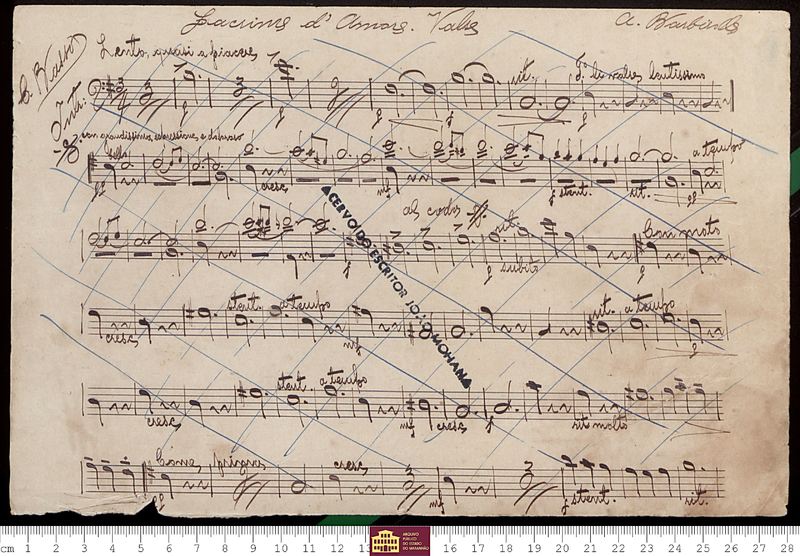 Lacrime d' Amore. Valse
C. Basso
Intr.
Lento, quasi a piacere
rit.
con grandissima espressione e doloroso
cello
a tempo
cresc
mf
f stent.
rit.
pp
al coda
rit.
Con moto
f
f subito
stent. a tempo
rit. a tempo
cresc
mf
f
stent a tempo
cresc
mf cresc f
rit molto
Come prima
cresc
pp
mf
f stent.
rit.
ACERVO DO ESCRITOR JOÃO MOHANA
ARQUIVO PÚBLICO DO ESTADO DO MARANHÃO
cm 1 2 3 4 5 6 7 8 9 10 11 12 13 16 17 18 19 20 21 22 23 24 25 26 27 28